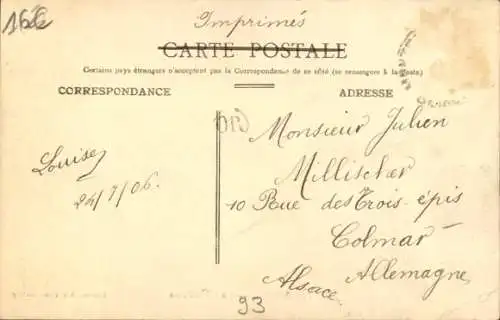 162
Imprimés
CARTE POSTALE
Certains pays étrangers n'acceptent pas la Correspondance de ce côté (se renseigner à la Poste)
CORRESPONDANCE
ADRESSE
Monsieur Julien
Millischer
10 Rue des Trois-épis
Colmar
Alsace Allemagne
Louise
24/7/06.
93